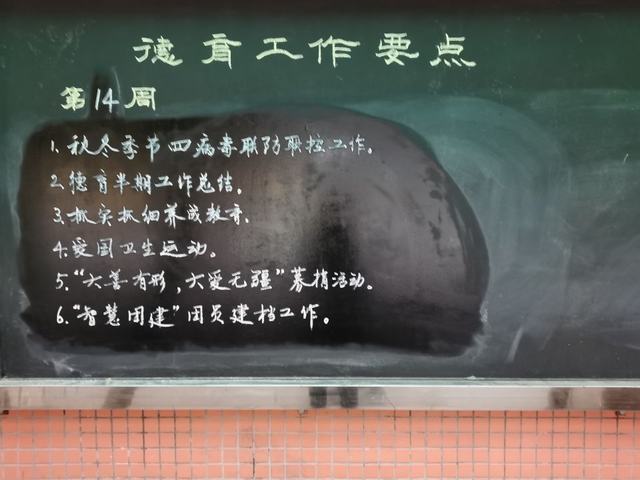 德育工作要点
第14周
1.秋冬季节四病毒联防联控工作。
2.德育半期工作总结。
3.抓实抓细养成教育.
4.爱国卫生运动。
5.“大善有形，大爱无疆”募捐活动。
6.“智慧团建”团员建档工作。